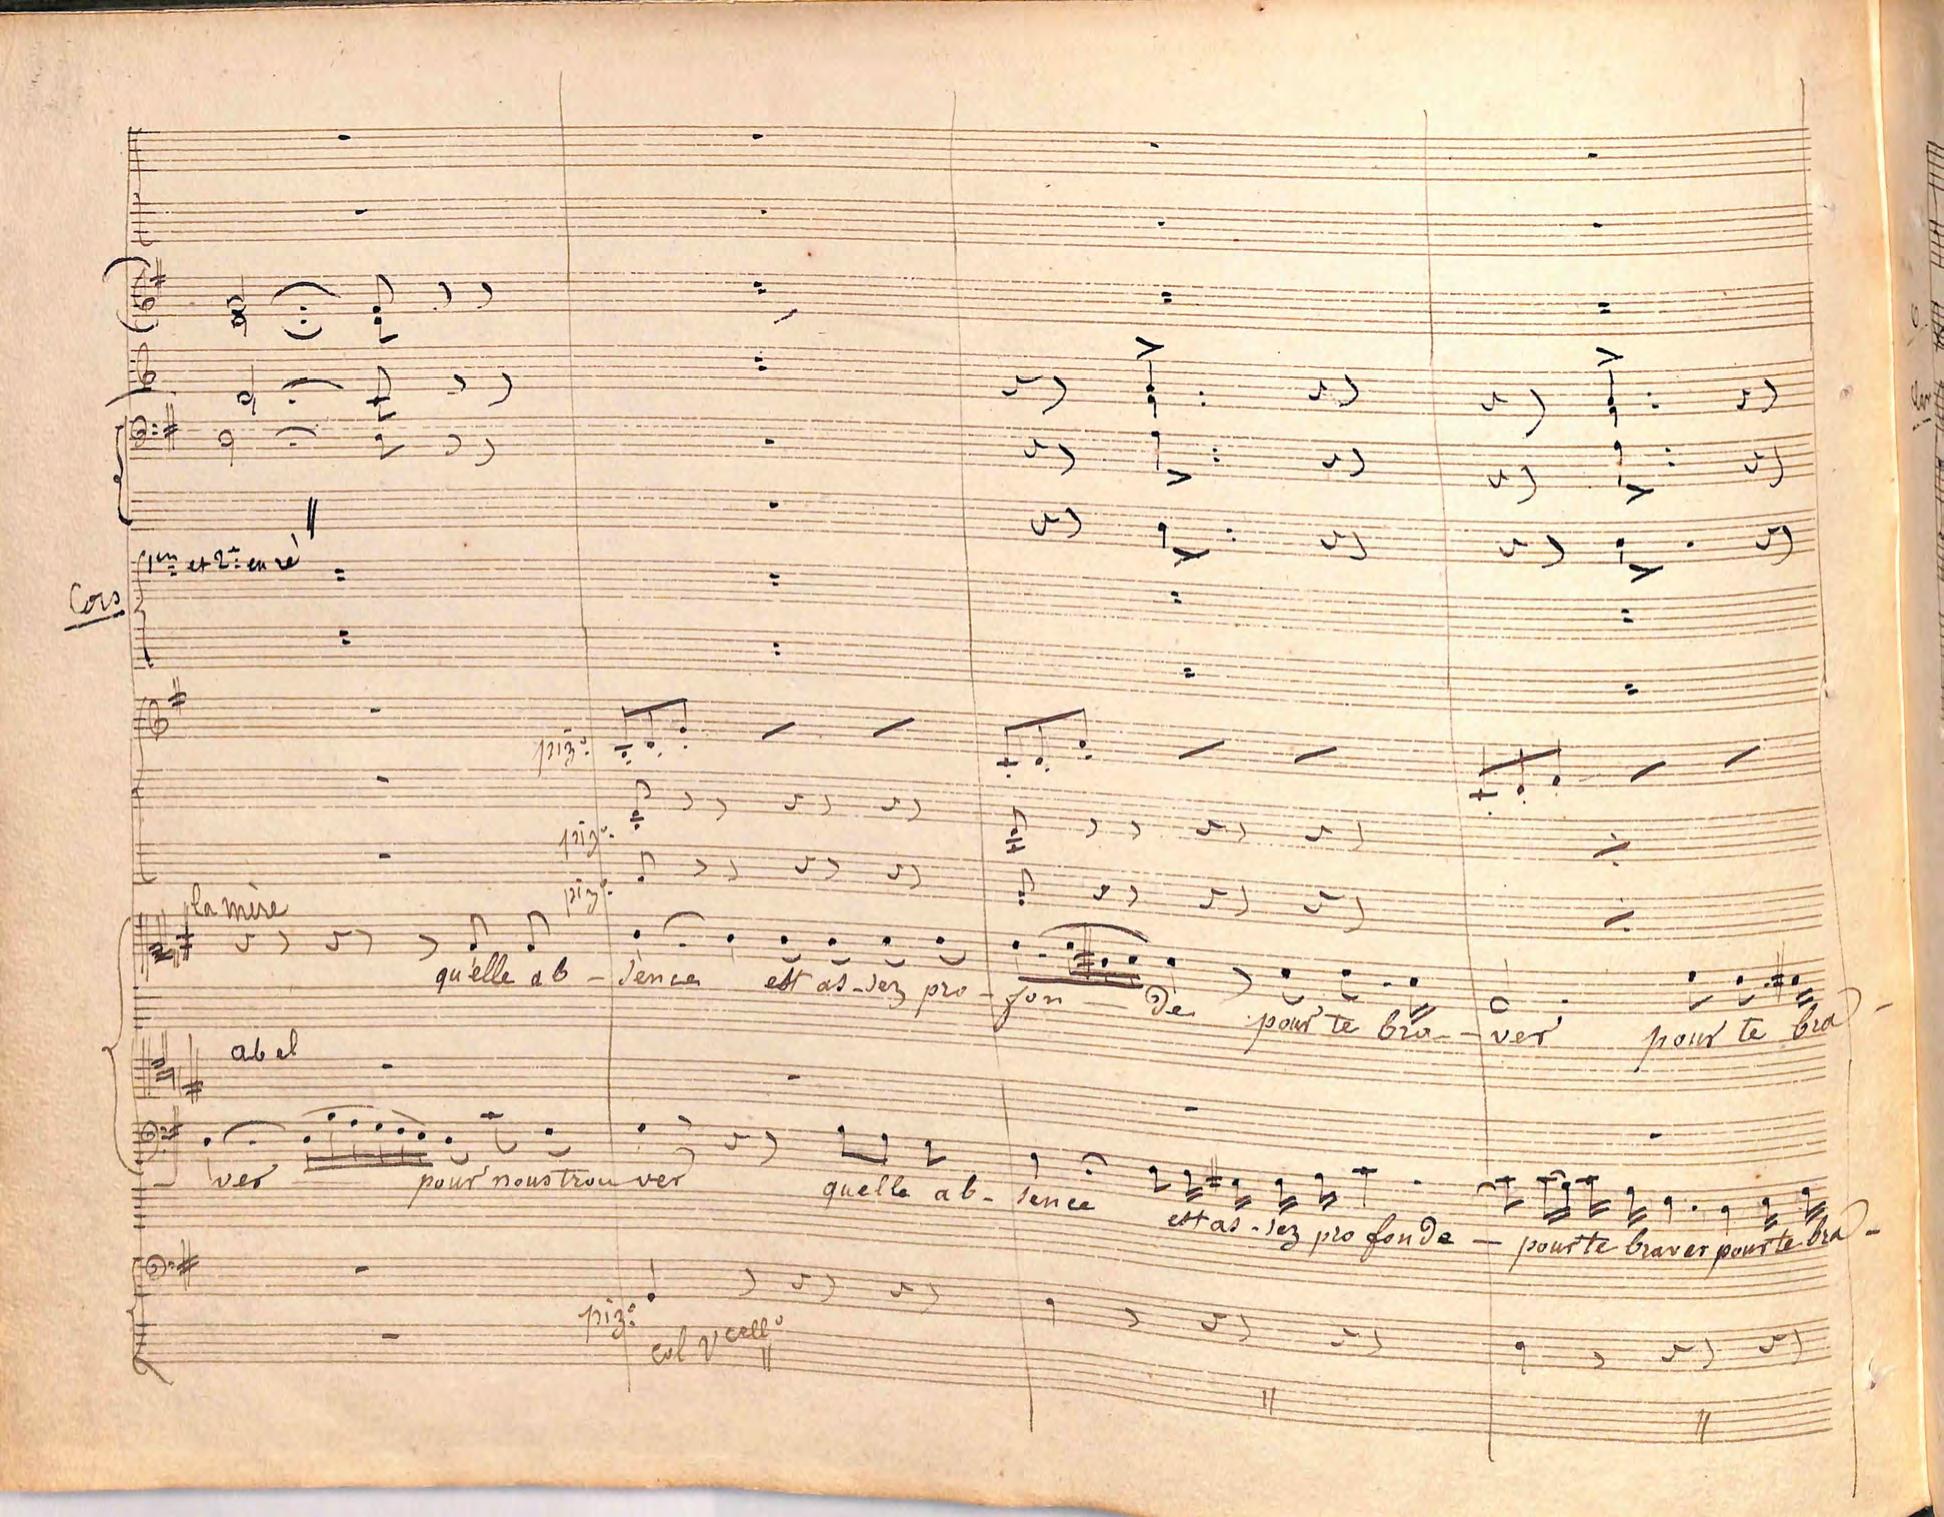 1er et 2e en ré
Cors
piz.o
piz.o
piz.o
la mère
qu'elle ab - sence est as-sez pro - fon - de pour te bra - ver pour te bra -
abel
ver pour nous trou ver quelle ab - sence est as - sez pro fonde - pour te braver pour te bra -
piz.o
col Vcello